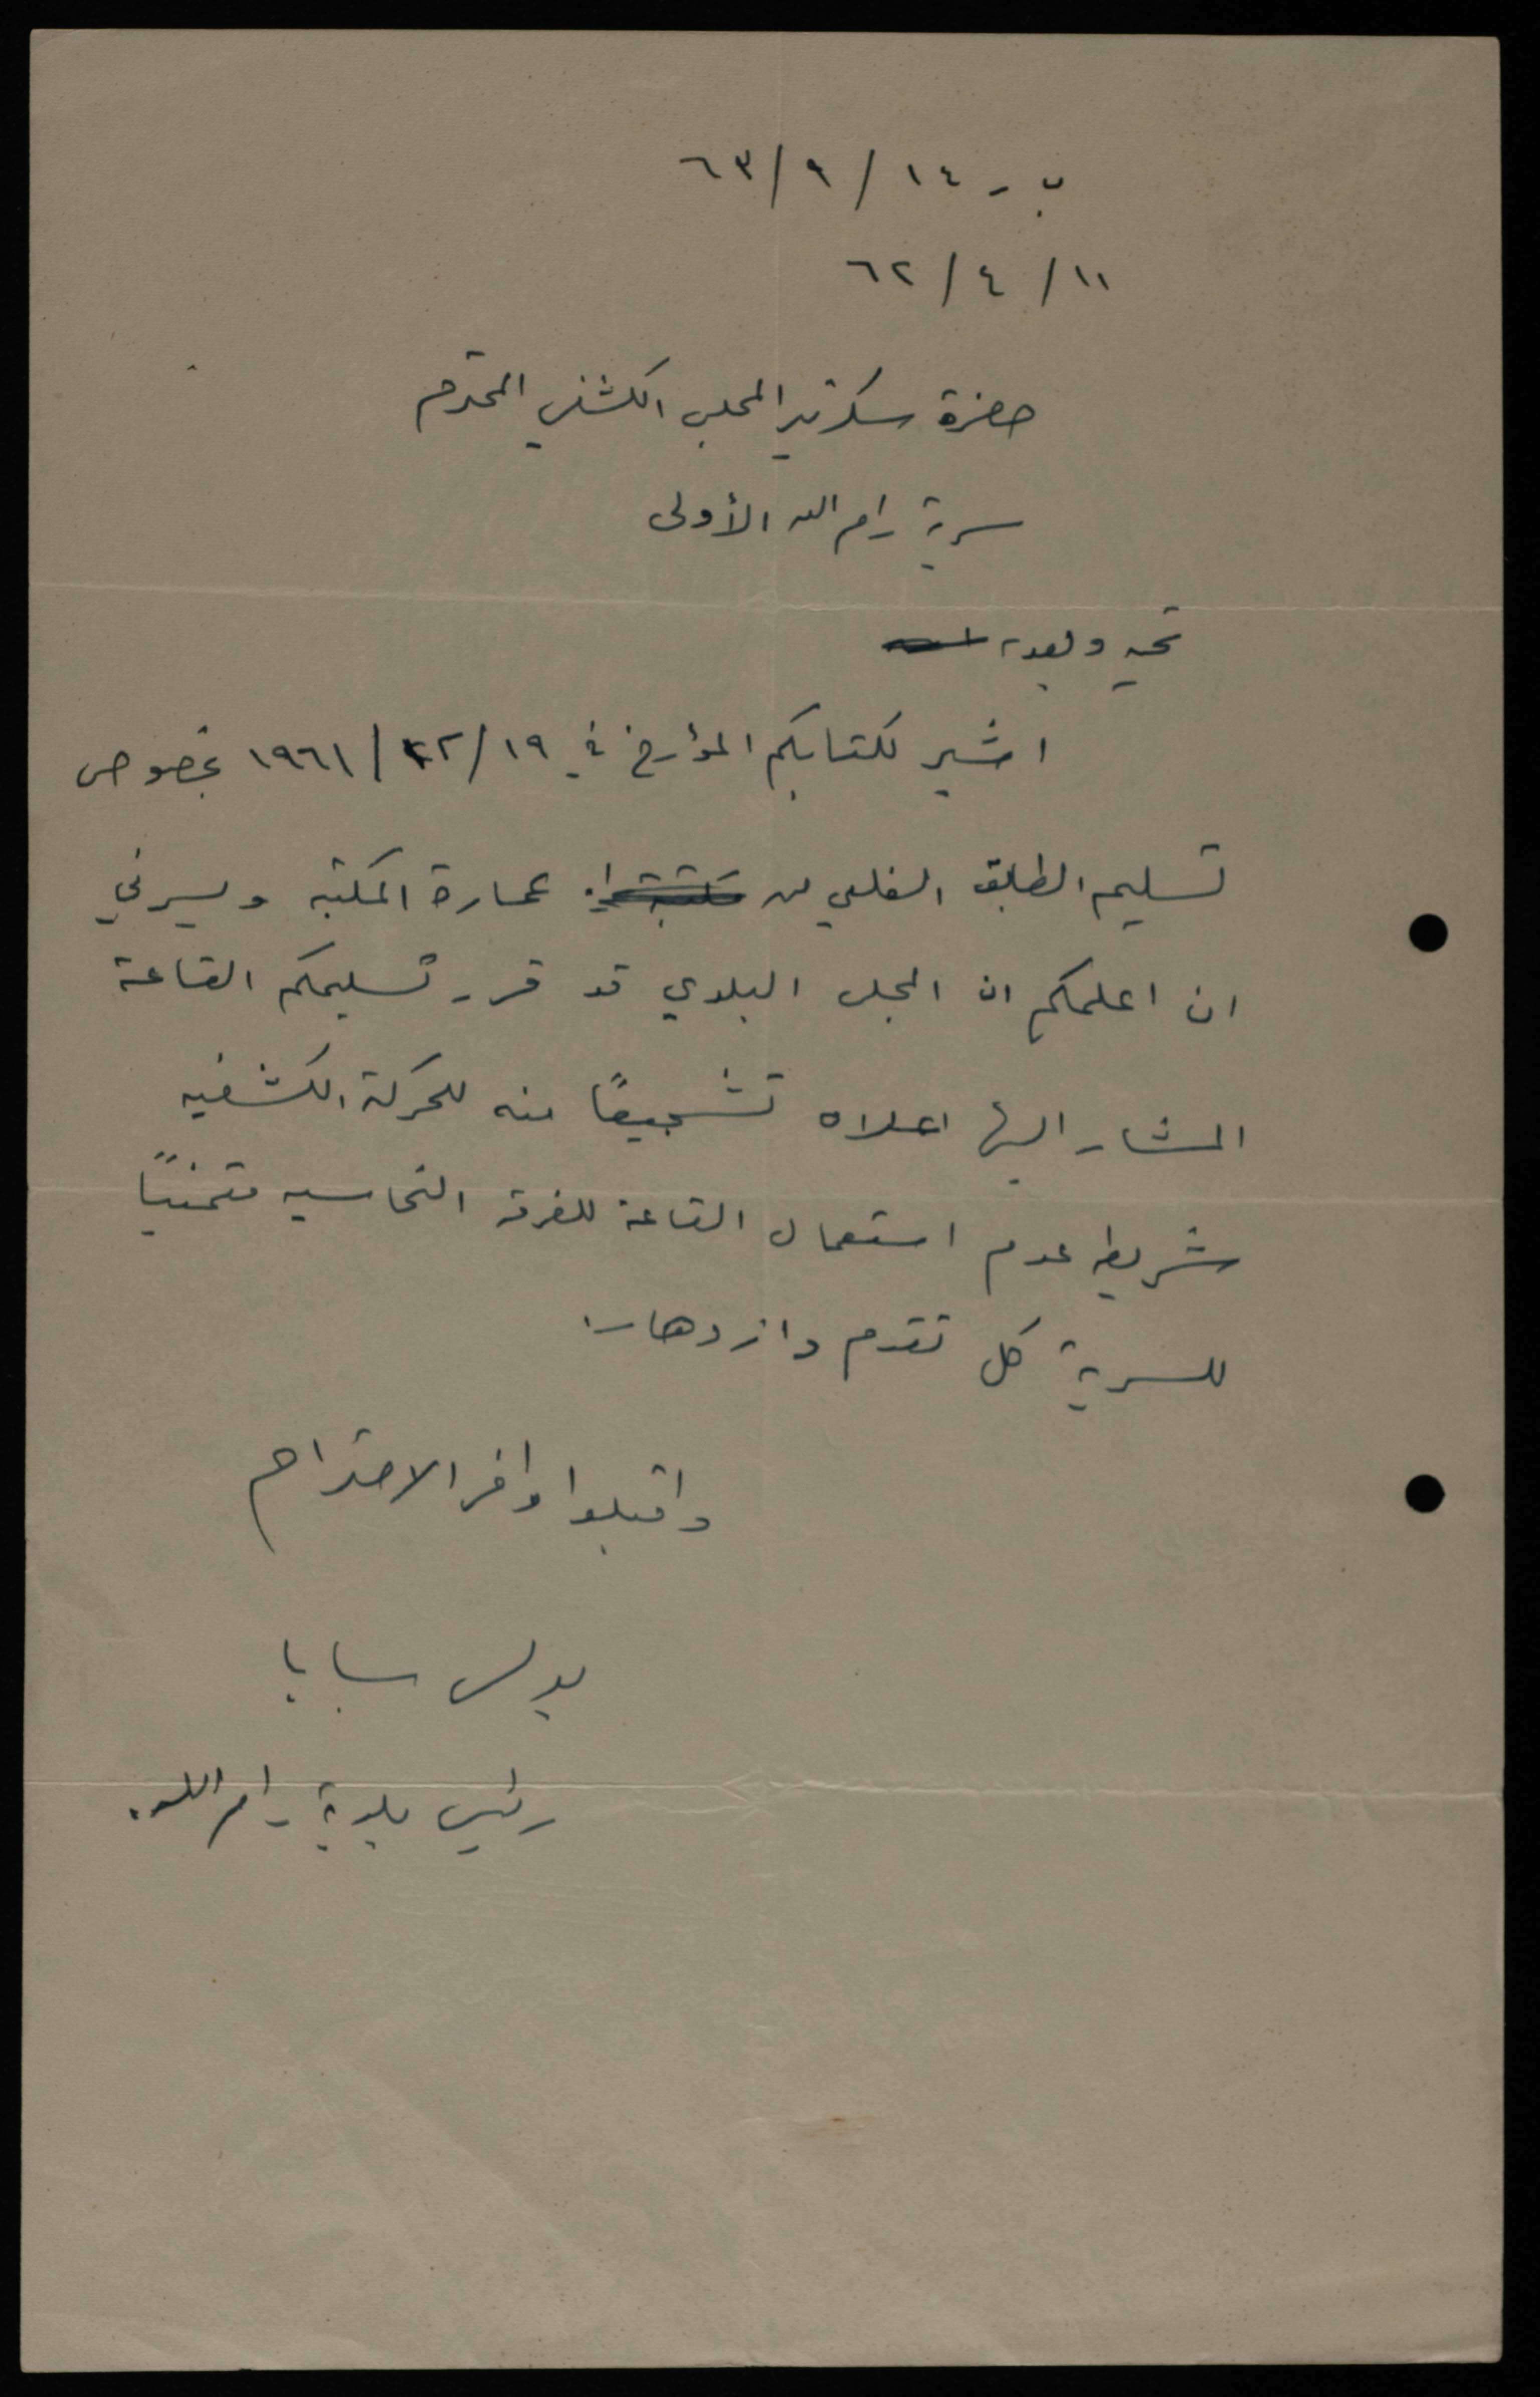 ب ر ١٤ / ٩ / ٦٣
١١ / ٤ / ٦٢
حضرة سكرتير المجلس الكشفي المحترم
سرية رام الله الأولى
تحيه وبعد،
اشير لكتابكم المؤرخ في ١٩/١٢/١٩٦١ بخصوص
تسليم الطابق السفلي من عمارة المكتبه ويسرني
ان اعلمكم ان المجلس البلدي قد قرر تسليمكم القاعة
المشار اليها اعلاه تشجيعًا منه للحركة الكشفيه
شريطه عدم استعمال القاعة للفرقه النحاسيه متمنيًا
للسرية كل تقدم وازدهار.
واقبلوا وافر الاحترام
بولس سابا
رئيس بلدية رام الله.